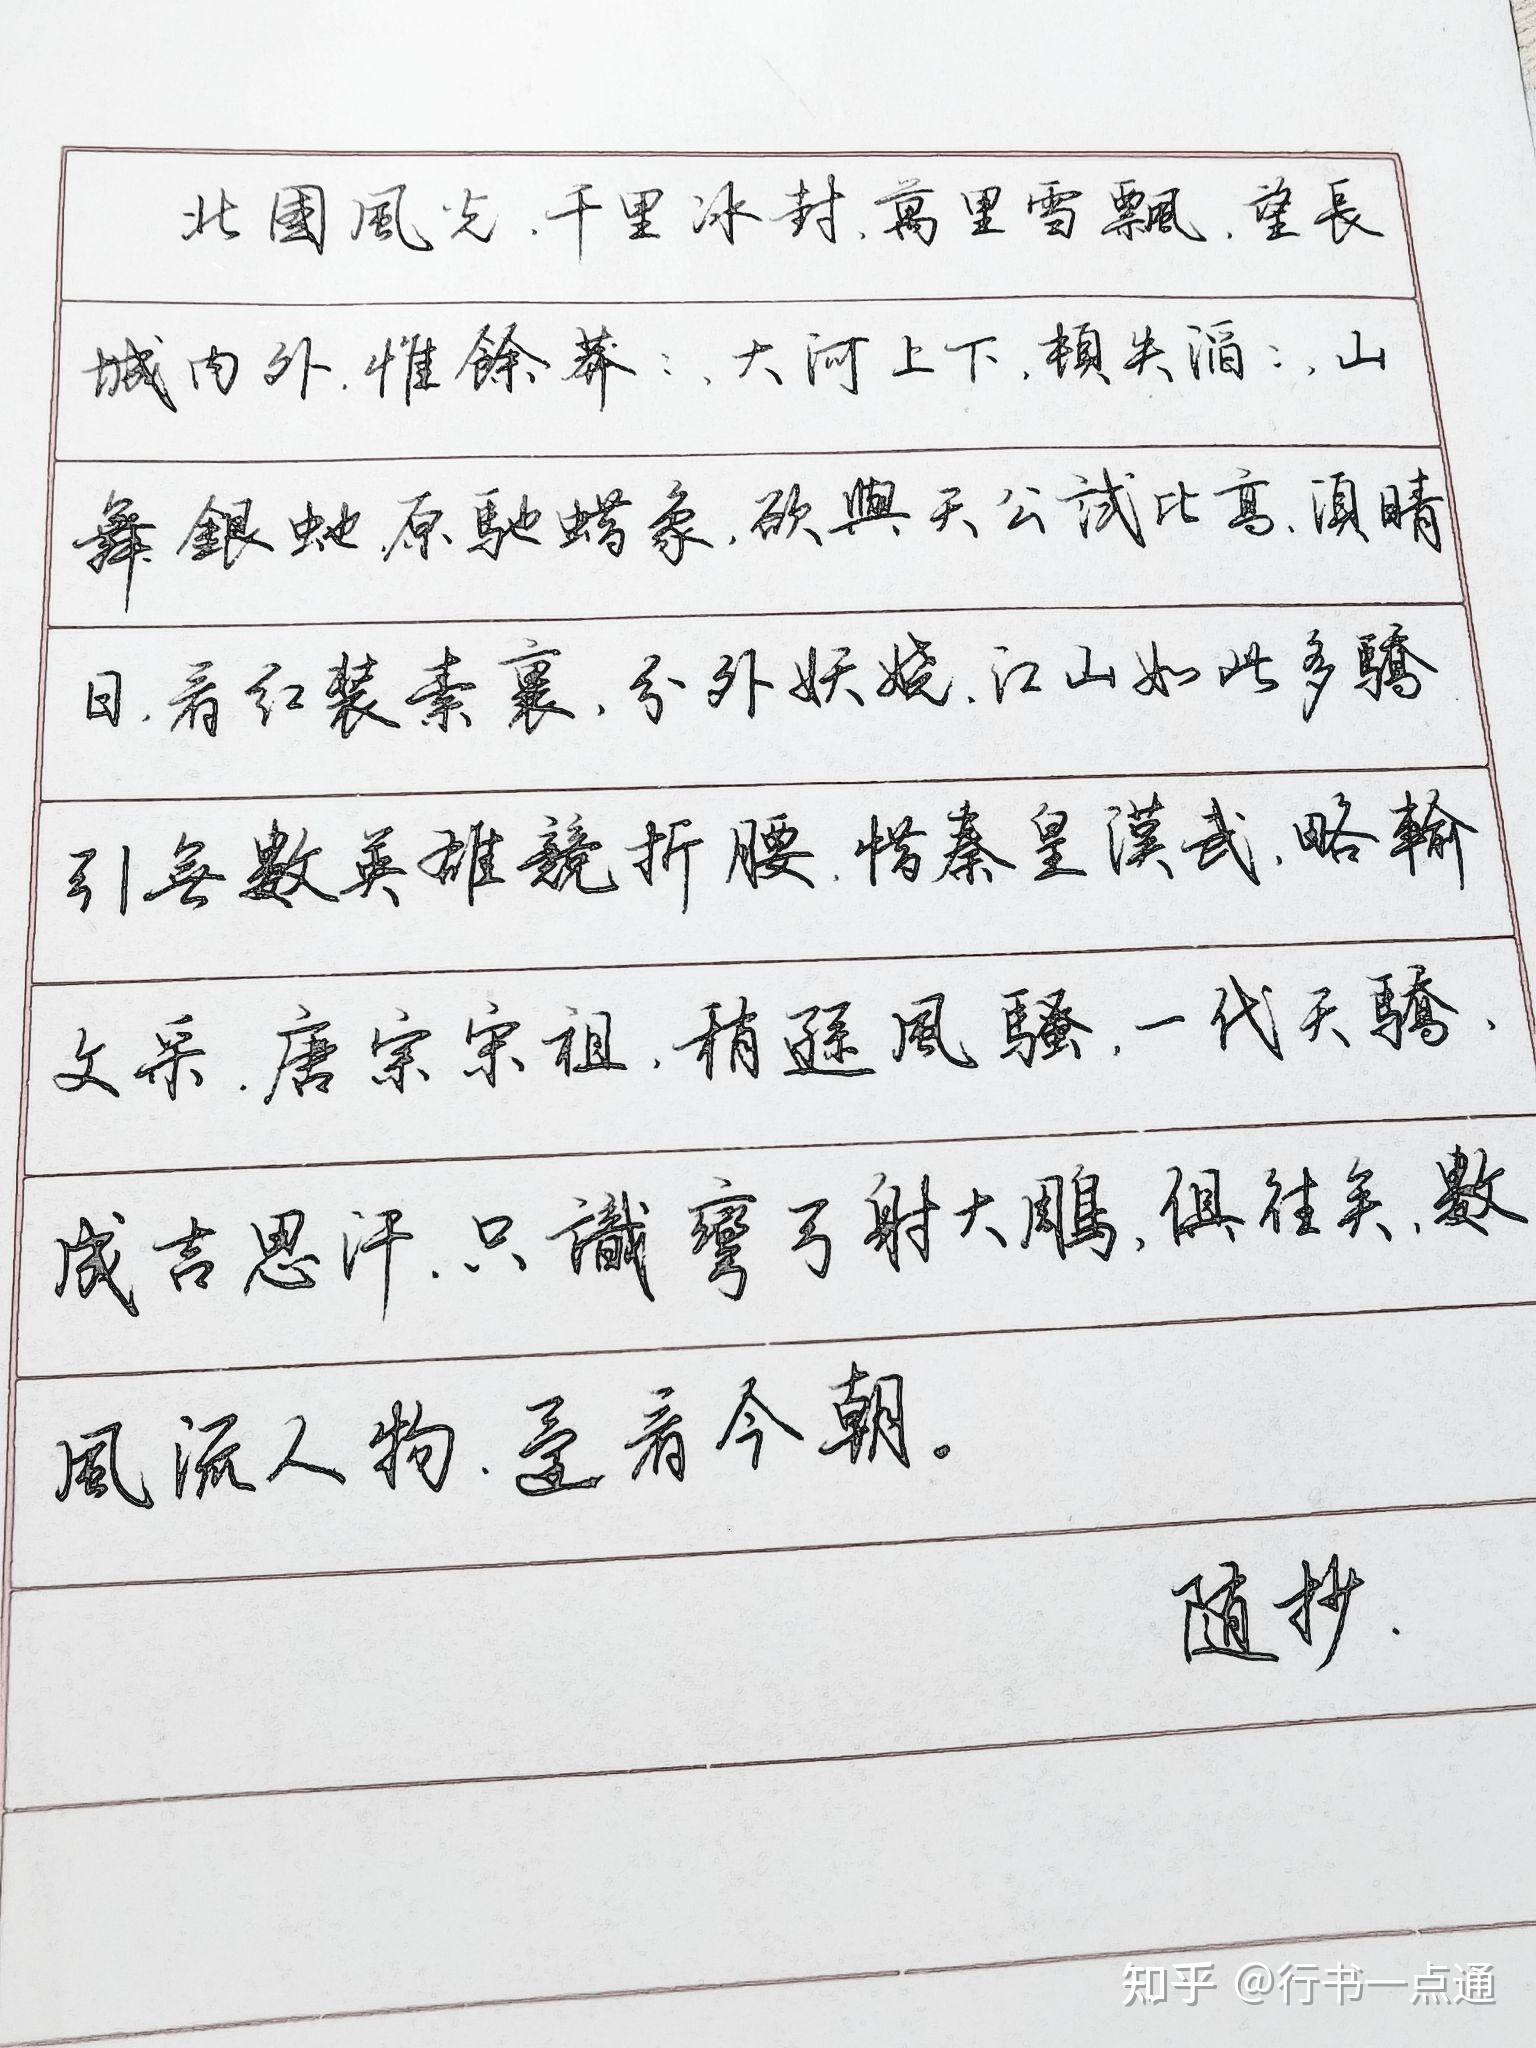 北國風光，千里冰封，萬里雪飄，望長
城内外，惟餘莽：，大河上下，頓失滔：，山
舞銀虵，原馳蠟象，欲與天公試比高，須晴
日，看紅裝素裹，分外妖嬈，江山如此多驕
引無數英雄競折腰，惜秦皇漢武，略輸
文采，唐宗宋祖，稍遜風騷，一代天驕，
成吉思汗，只識彎弓射大鵰，俱往矣，數
風流人物，還看今朝。
随抄.
知乎 @行书一点通